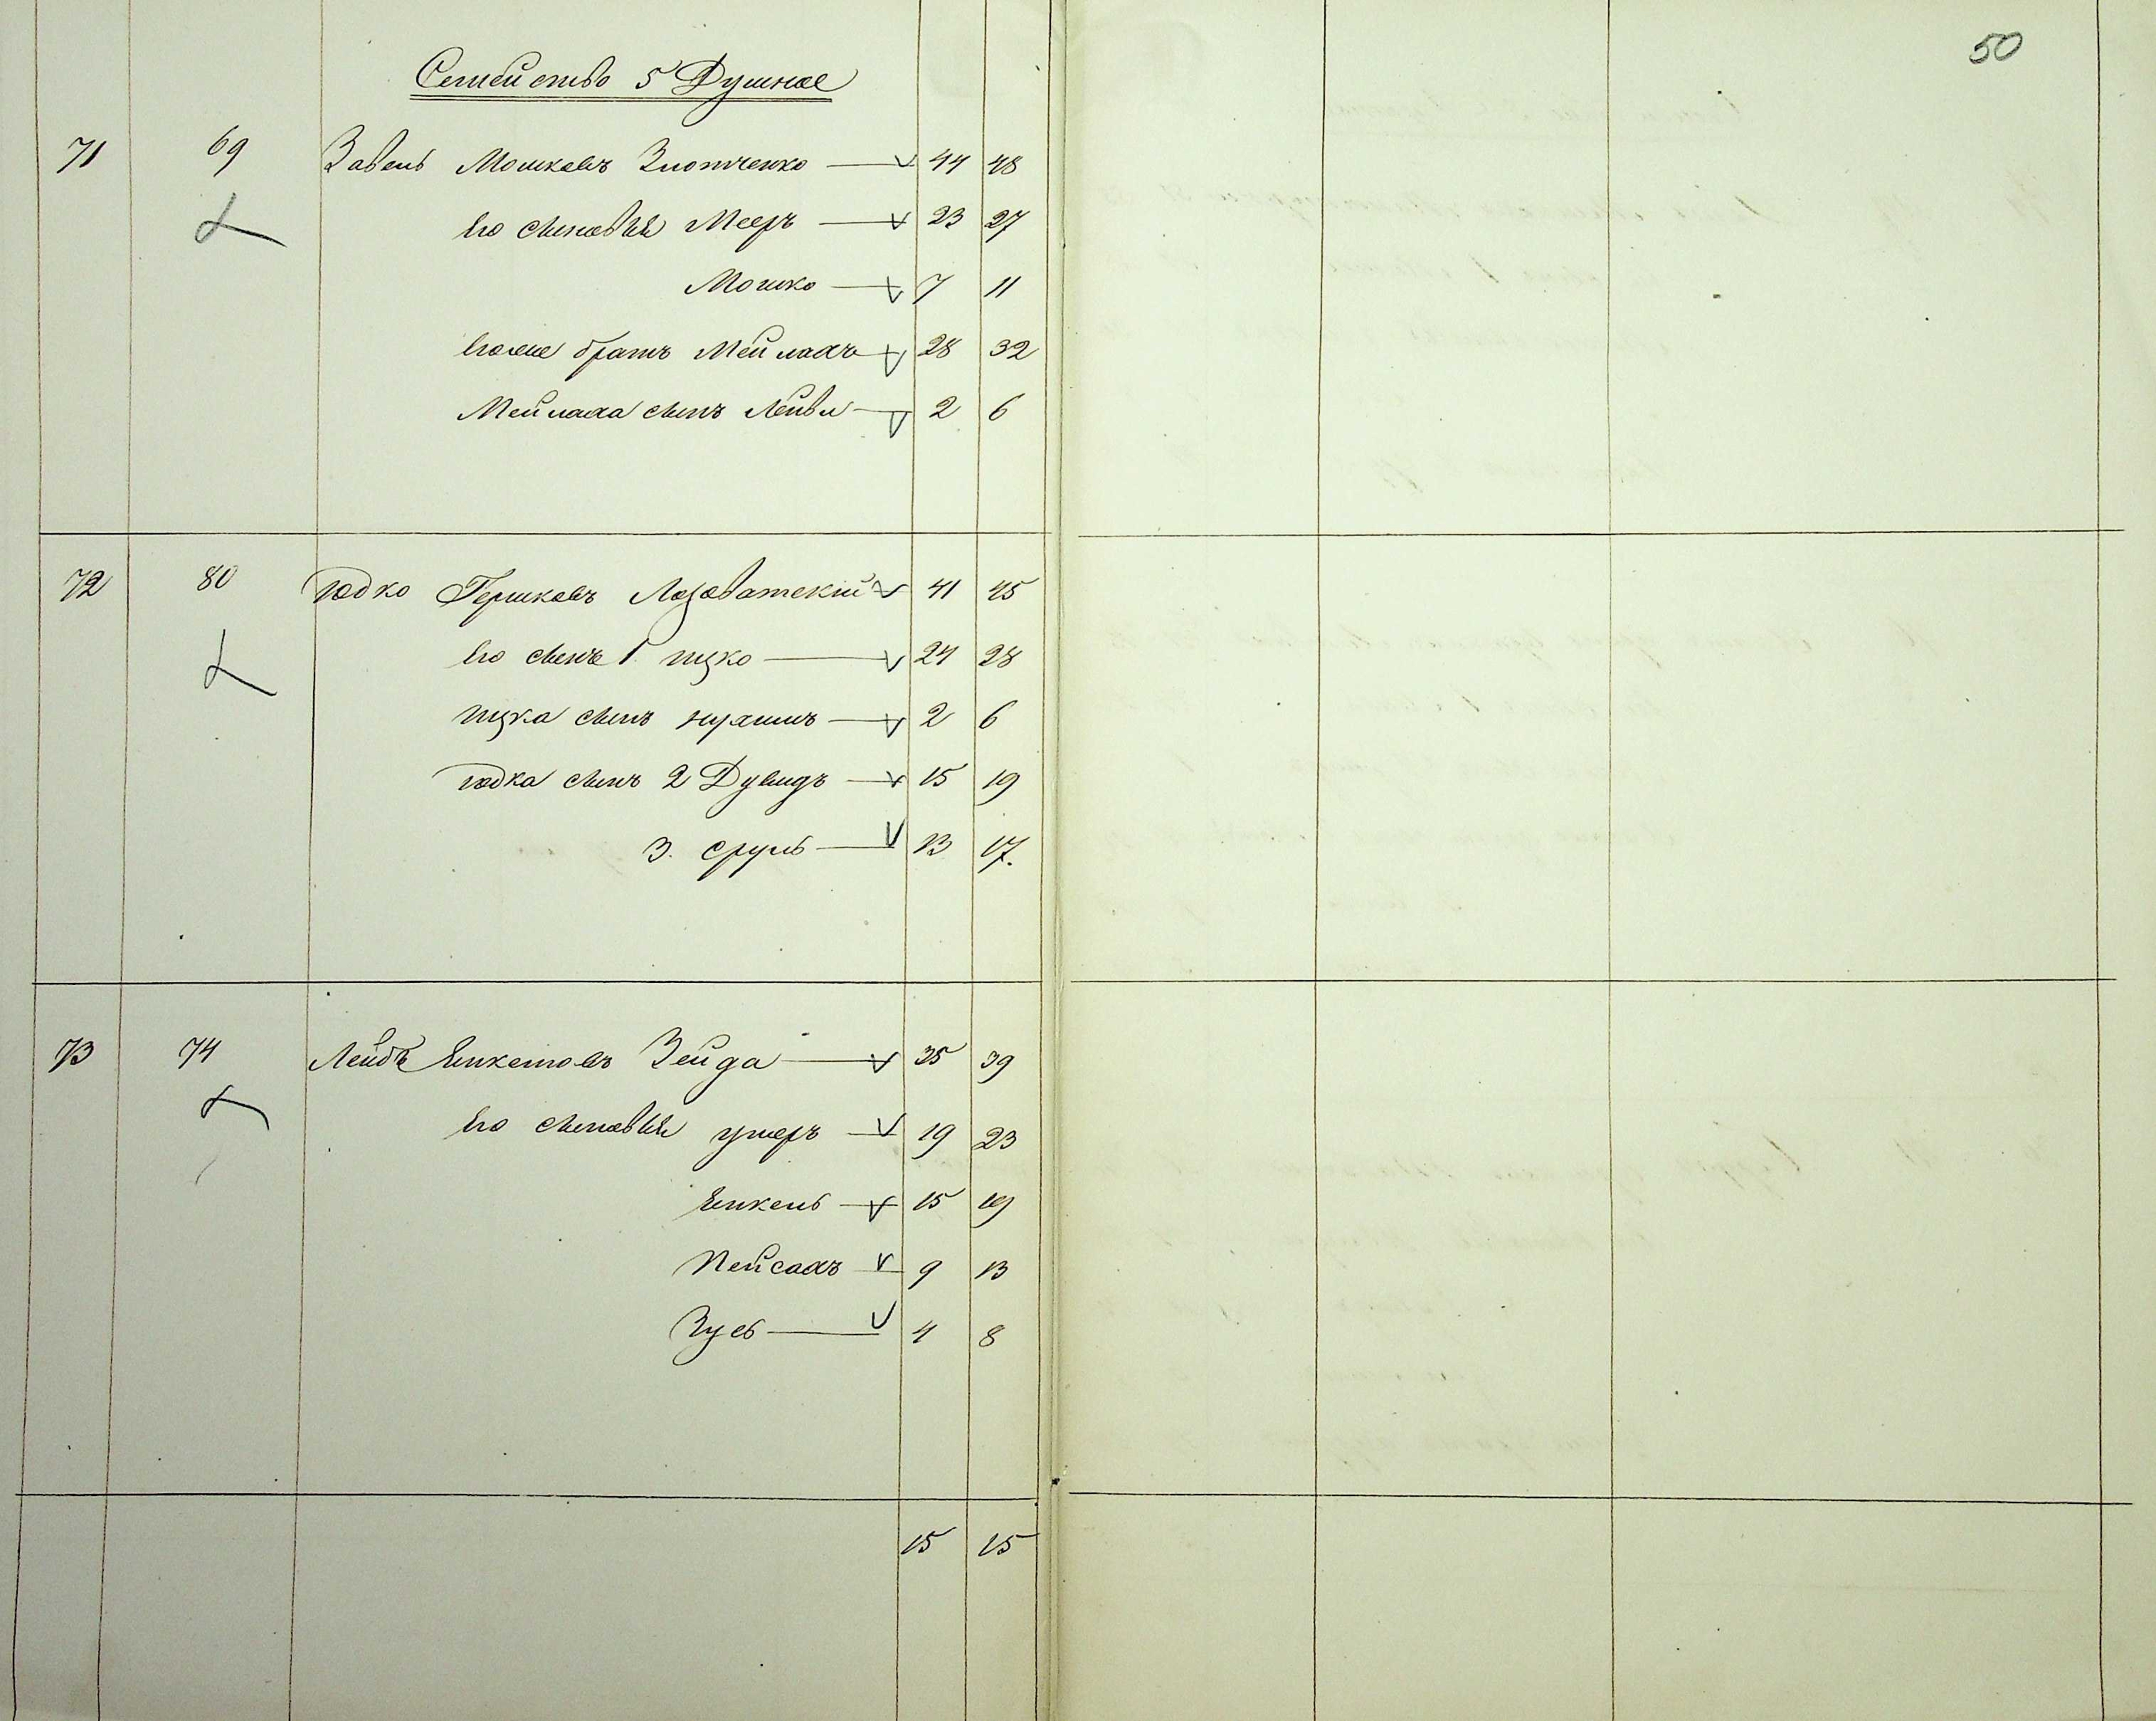 50
Семейство 5 Душное
71 69 Завель Мошковъ Злотченко 44 48
его сыновья Мееръ 23 27
Мошко 7 11
его же братъ Мейлахъ 28 32
Мейлаха сынъ Лейви 2 6
72 80 Юдко Гершковъ Лозоватскій 41 45
его сынъ 1. ицко 24 28
ицка сынъ нухимъ 2 6
юдка сынъ 2 Дувидъ 15 19
3. сруль 13 17.
73 74 Лейбъ Янкелювъ Зейда 35 39
его сыновья ушеръ 19 23
Янкель 15 19
Пейсахъ 9 13
Зусь 4 8
15 15